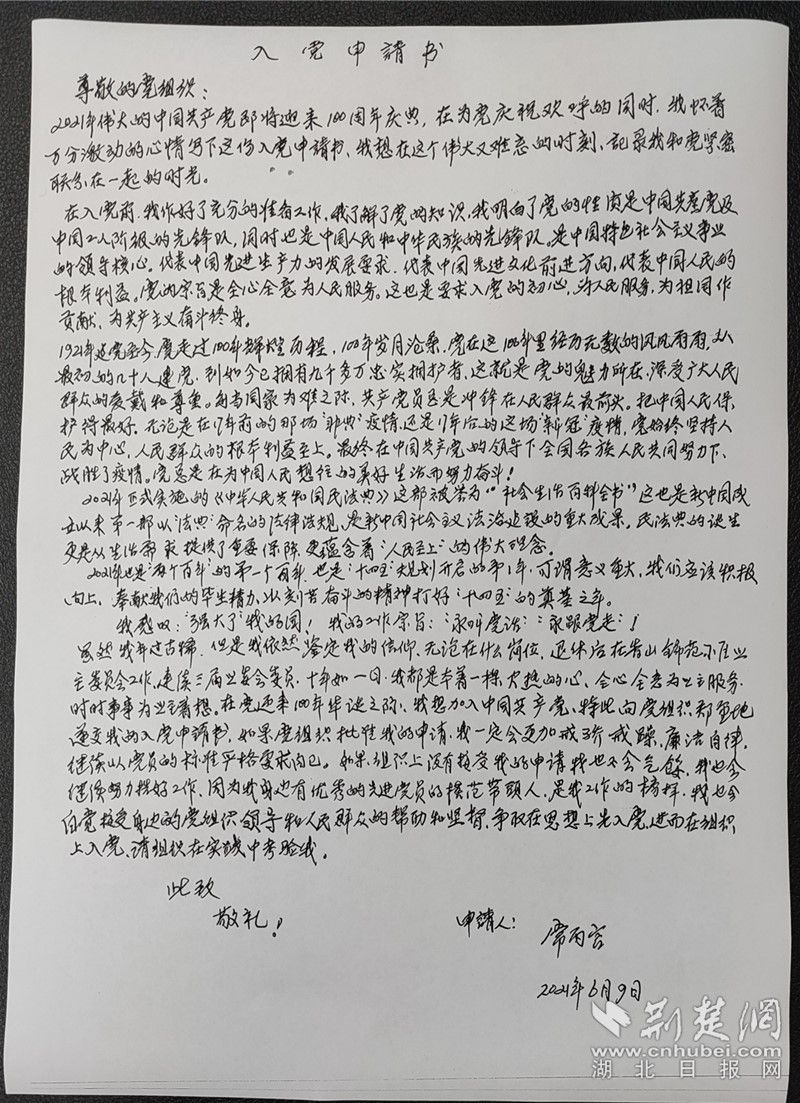 入党申請书
尊敬的党组织：
2021年伟大的中国共产党即将迎来100周年庆典，在为党庆祝欢呼的同时，我怀着
万分激动的心情写下这份入党申請书，我想在这个伟大又难忘的时刻，記录我和党紧密
联系在一起的时光。
在入党前，我作好了充分的准备工作，我了解了党的知识，我明白了党的性质是中国共產党及
中国工人阶级的先锋队，同时也是中国人民和中华民族的先锋队，是中国特色社会主义事业
的领导核心。代表中国先进生产力的发展要求，代表中国先进文化前进方向，代表中国人民的
根本利益。党的宗旨是全心全意为人民服务。这也是要求入党的初心，为人民服务，为祖国作
贡献，为共产主义奋斗终身。
1921年建党至今，党走过100年辉煌历程，100年岁月沧桑，党在这100年里经历无数的风风雨雨，从
最初的几十人建党，到如今已拥有九千多万忠实拥护者，这就是党的魅力所在，深受广大人民
群众的爱戴和尊重。每当国家为难之际，共产党员总是冲锋在人民群众最前头。把中国人民保
护得最好。无论是在17年前的那场"非典"疫情，还是17年后的这场"新冠"疫情，党始终坚持人
民为中心，人民群众的根本利益至上。最终在中国共产党的领导下全国各族人民共同努力下、
战胜了疫情。党总是在为中国人民想往的美好生活而努力奋斗！
2021年正式实施的《中华人民共和国民法典》这部被誉为"社会生活百科全书"这也是新中国成
立以来第一部以"法典"命名的法律法规，是新中国社会主义法治建设的重大成果。民法典的诞生
更是从生活需求提供了重要保障，更蕴含着"人民至上"的伟大理念。
2021年也是"两个百年"的第一个百年，也是"十四五"规划开启的第1年，可谓意义重大，我们应该积极
向上，奉献我们的毕生精力，以刻苦奋斗的精神打好"十四五"的奠基之年。
我感叹："强大了"我的国！我的工作宗旨："永听党话""永跟党走"！
虽然我年过古稀，但是我依然坚定我的信仰，无论在什么岗位，退休后在青山锦苑小区业
主委员会工作，连续三届业委会委员，十年如一日，我都是本着一棵火热的心，全心全意为业主服务，
时时事事为业主着想。在党迎来100年华诞之际，我想加入中国共产党，特此向党组织郑重地
递交我的入党申請书，如果党组织批准我的申請，我一定会更加戒骄戒躁，廉洁自律，
继续以党员的标准严格要求自己。如果组织上没有接受我的申請我也不会气馁，我也会
继续努力搞好工作，因为我身边有优秀的先进党员的模范带頭人，是我工作的榜样，我也会
自觉接受身边的党组织领导和人民群众的帮助和监督，争取在思想上先入党，进而在组织
上入党，请组织在实践中考验我。
此致
敬礼！
申請人：席丙容
2021年6月9日
荆楚網
www.cnhubei.com
湖北日报网